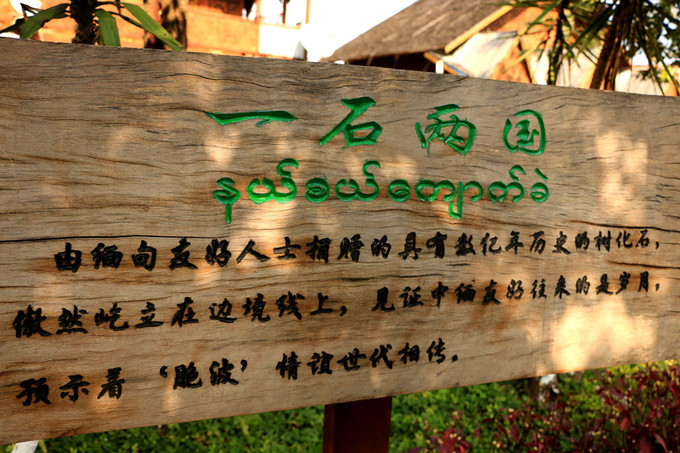 一石两国
နယ်စယ်ကျောက်ခဲ
由缅甸友好人士捐赠的具有数亿年历史的树化石，
傲然屹立在边境线上，见证中缅友好往来的是岁月，
预示着‘胞波’情谊世代相传。